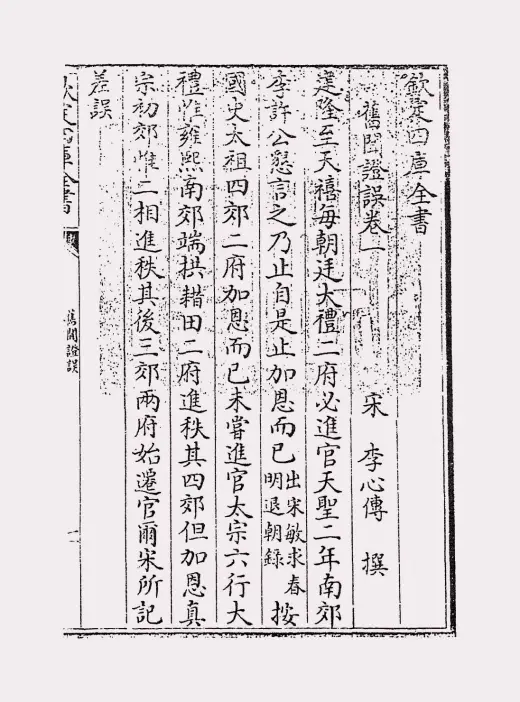 欽定四庫全書
舊聞證誤卷一
宋 李心傳 撰
建隆至天禧每朝廷大禮二府必進官天聖二年南郊
李許公懇言之乃止自是止加恩而已出宋敏求春明退朝錄按
國史太祖四郊二府加恩而已未嘗進官太宗六行大
禮惟雍熙南郊端拱耤田二府進秩其四郊但加恩真
宗初郊惟二相進秩其後三郊兩府始遷官爾宋所記
差誤
欽定四庫全書
舊聞證誤
一